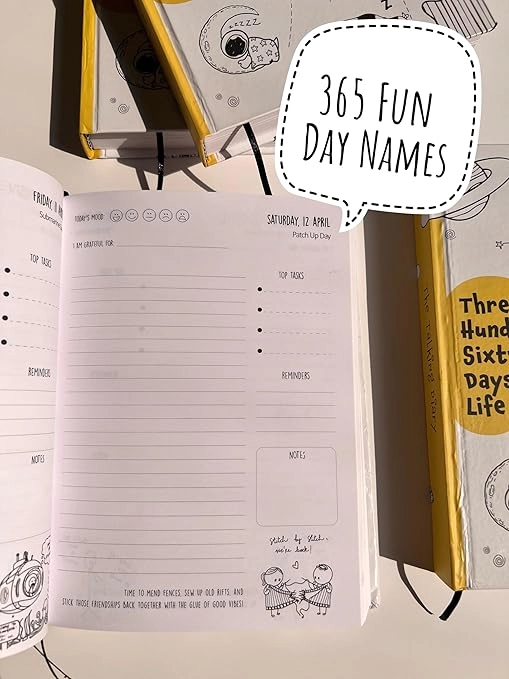 ZZZZ
365 FUN
DAY NAMES
FRIDAY, 11 A
Submarine
TOP TASKS
REMINDERS
NOTES
TODAY'S MOOD
SATURDAY, 12 APRIL
Patch Up Day
I AM GRATEFUL FOR
TOP TASKS
REMINDERS
NOTES
Stitch by Stitch,
we're back!
TIME TO MEND FENCES, SEW UP OLD RIFTS, AND
STICK THOSE FRIENDSHIPS BACK TOGETHER WITH THE GLUE OF GOOD VIBES!
The Talking Diary
Thre
Hund
Sixt
Days
Life